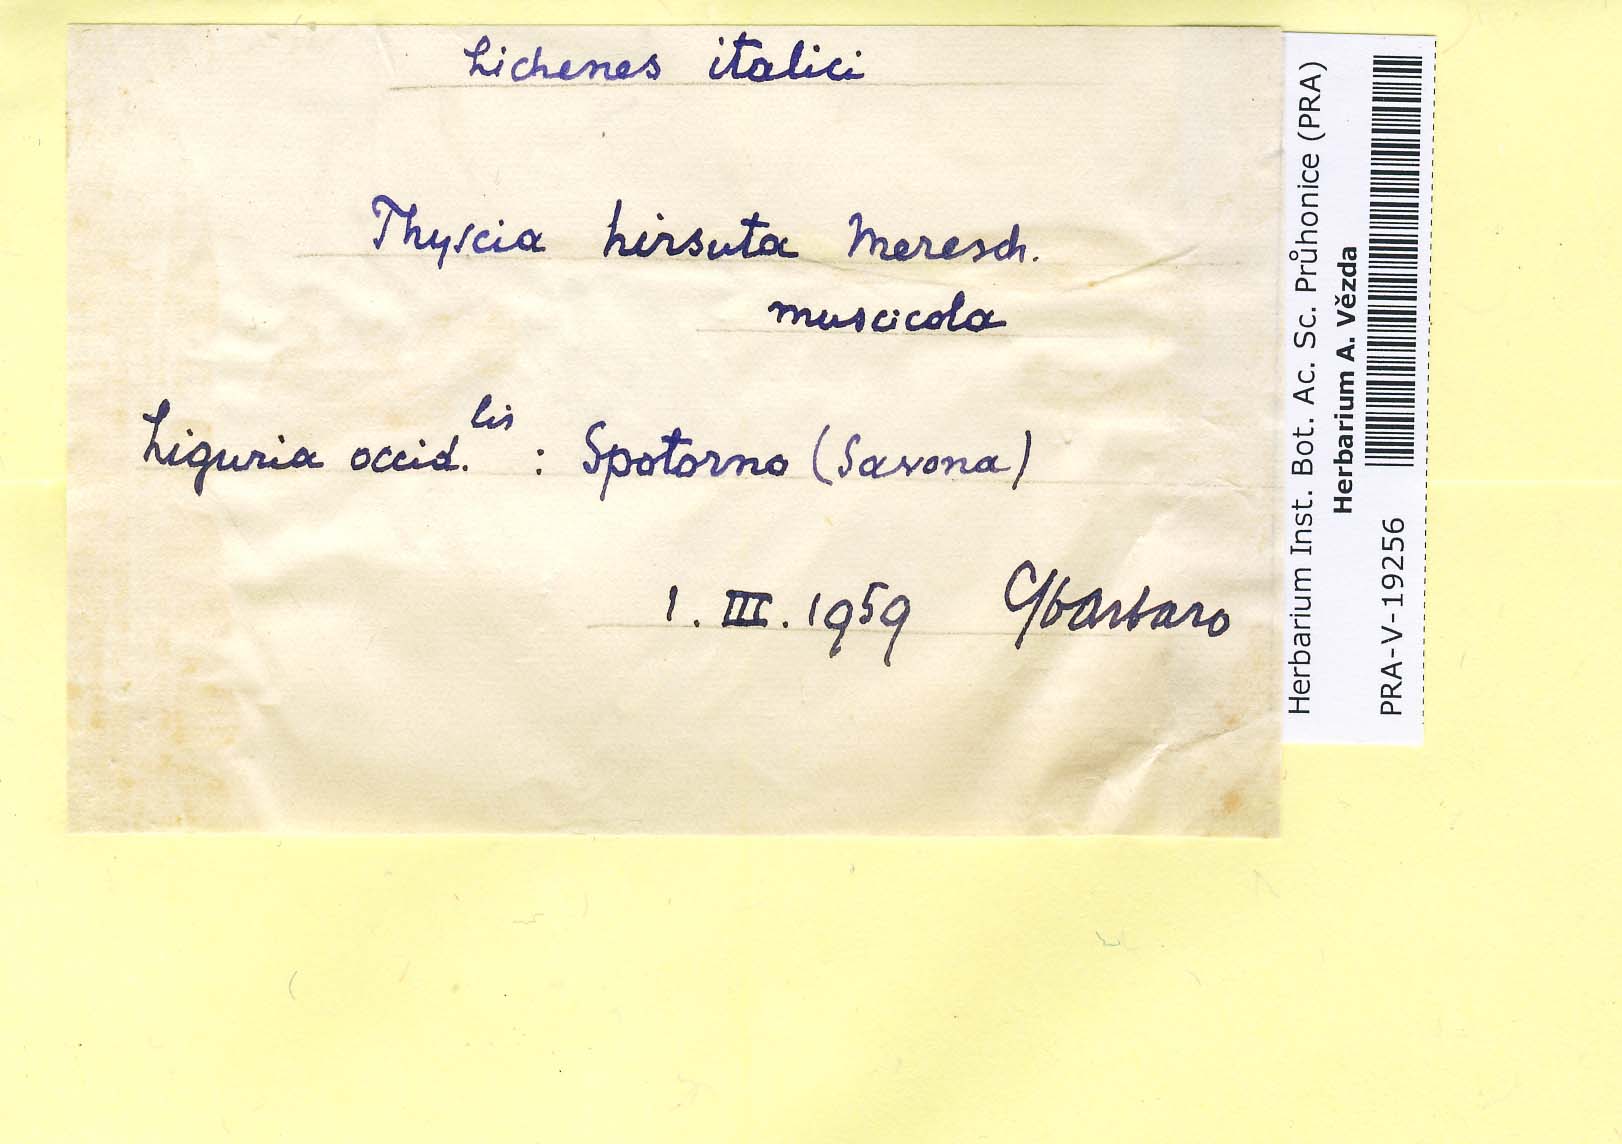 Lichenes italici
Physcia hirsuta Meresch.
muscicola
Liguria occid.lis : Spotorno (Savona)
1. III. 1959 Sbarbaro
Herbarium Inst. Bot. Ac. Sc. Průhonice (PRA)
Herbarium A. Vězda
PRA-V-19256